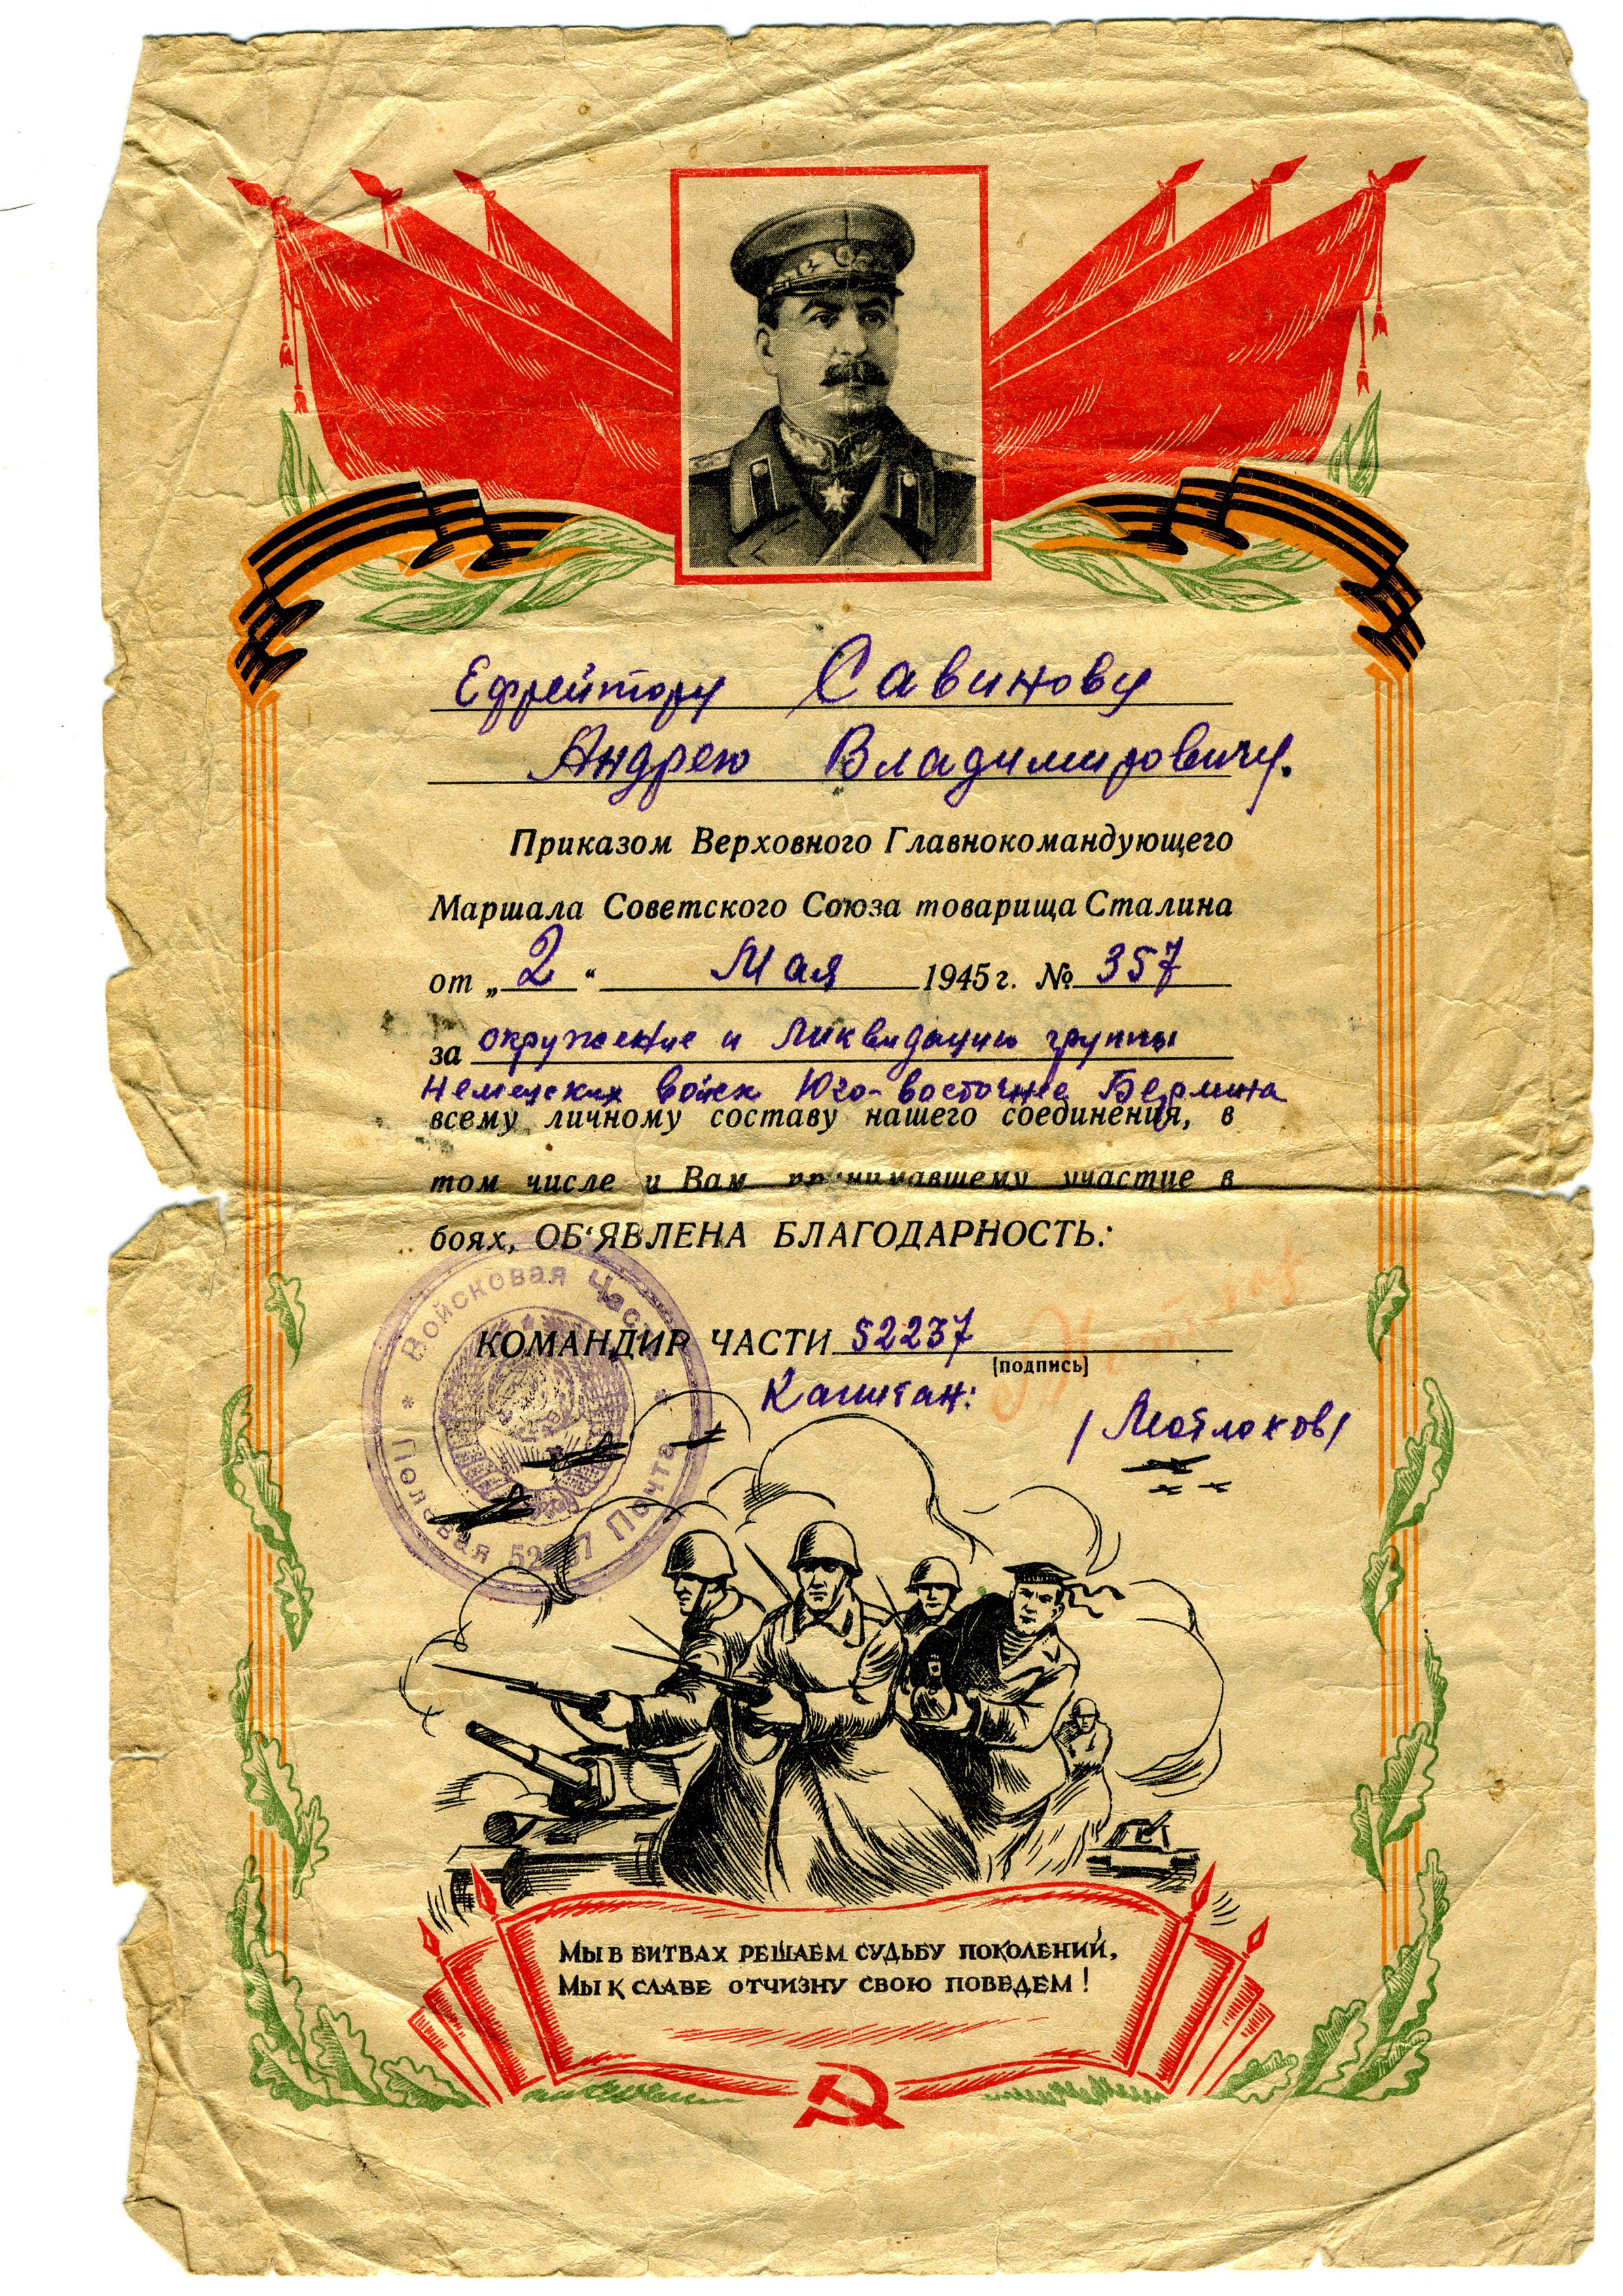 Ефрейтору Савинову
Андрею Владимировичу.
Приказом Верховного Главнокомандующего
Маршала Советского Союза товарища Сталина
от „2“ Мая 1945 г. № 357
за окружение и ликвидацию группы
Немецких войск Юго-восточнее Берлина
всему личному составу нашего соединения, в
том числе и Вам принимавшему участие в
боях, ОБ‘ЯВЛЕНА БЛАГОДАРНОСТЬ:
КОМАНДИР ЧАСТИ 52237
(подпись)
Капитан:
/Мотлохов/
* Войсковая Часть *
Полевая 52237 Почта
МЫ В БИТВАХ РЕШАЕМ СУДЬБУ ПОКОЛЕНИЙ,
МЫ К СЛАВЕ ОТЧИЗНУ СВОЮ ПОВЕДЕМ!